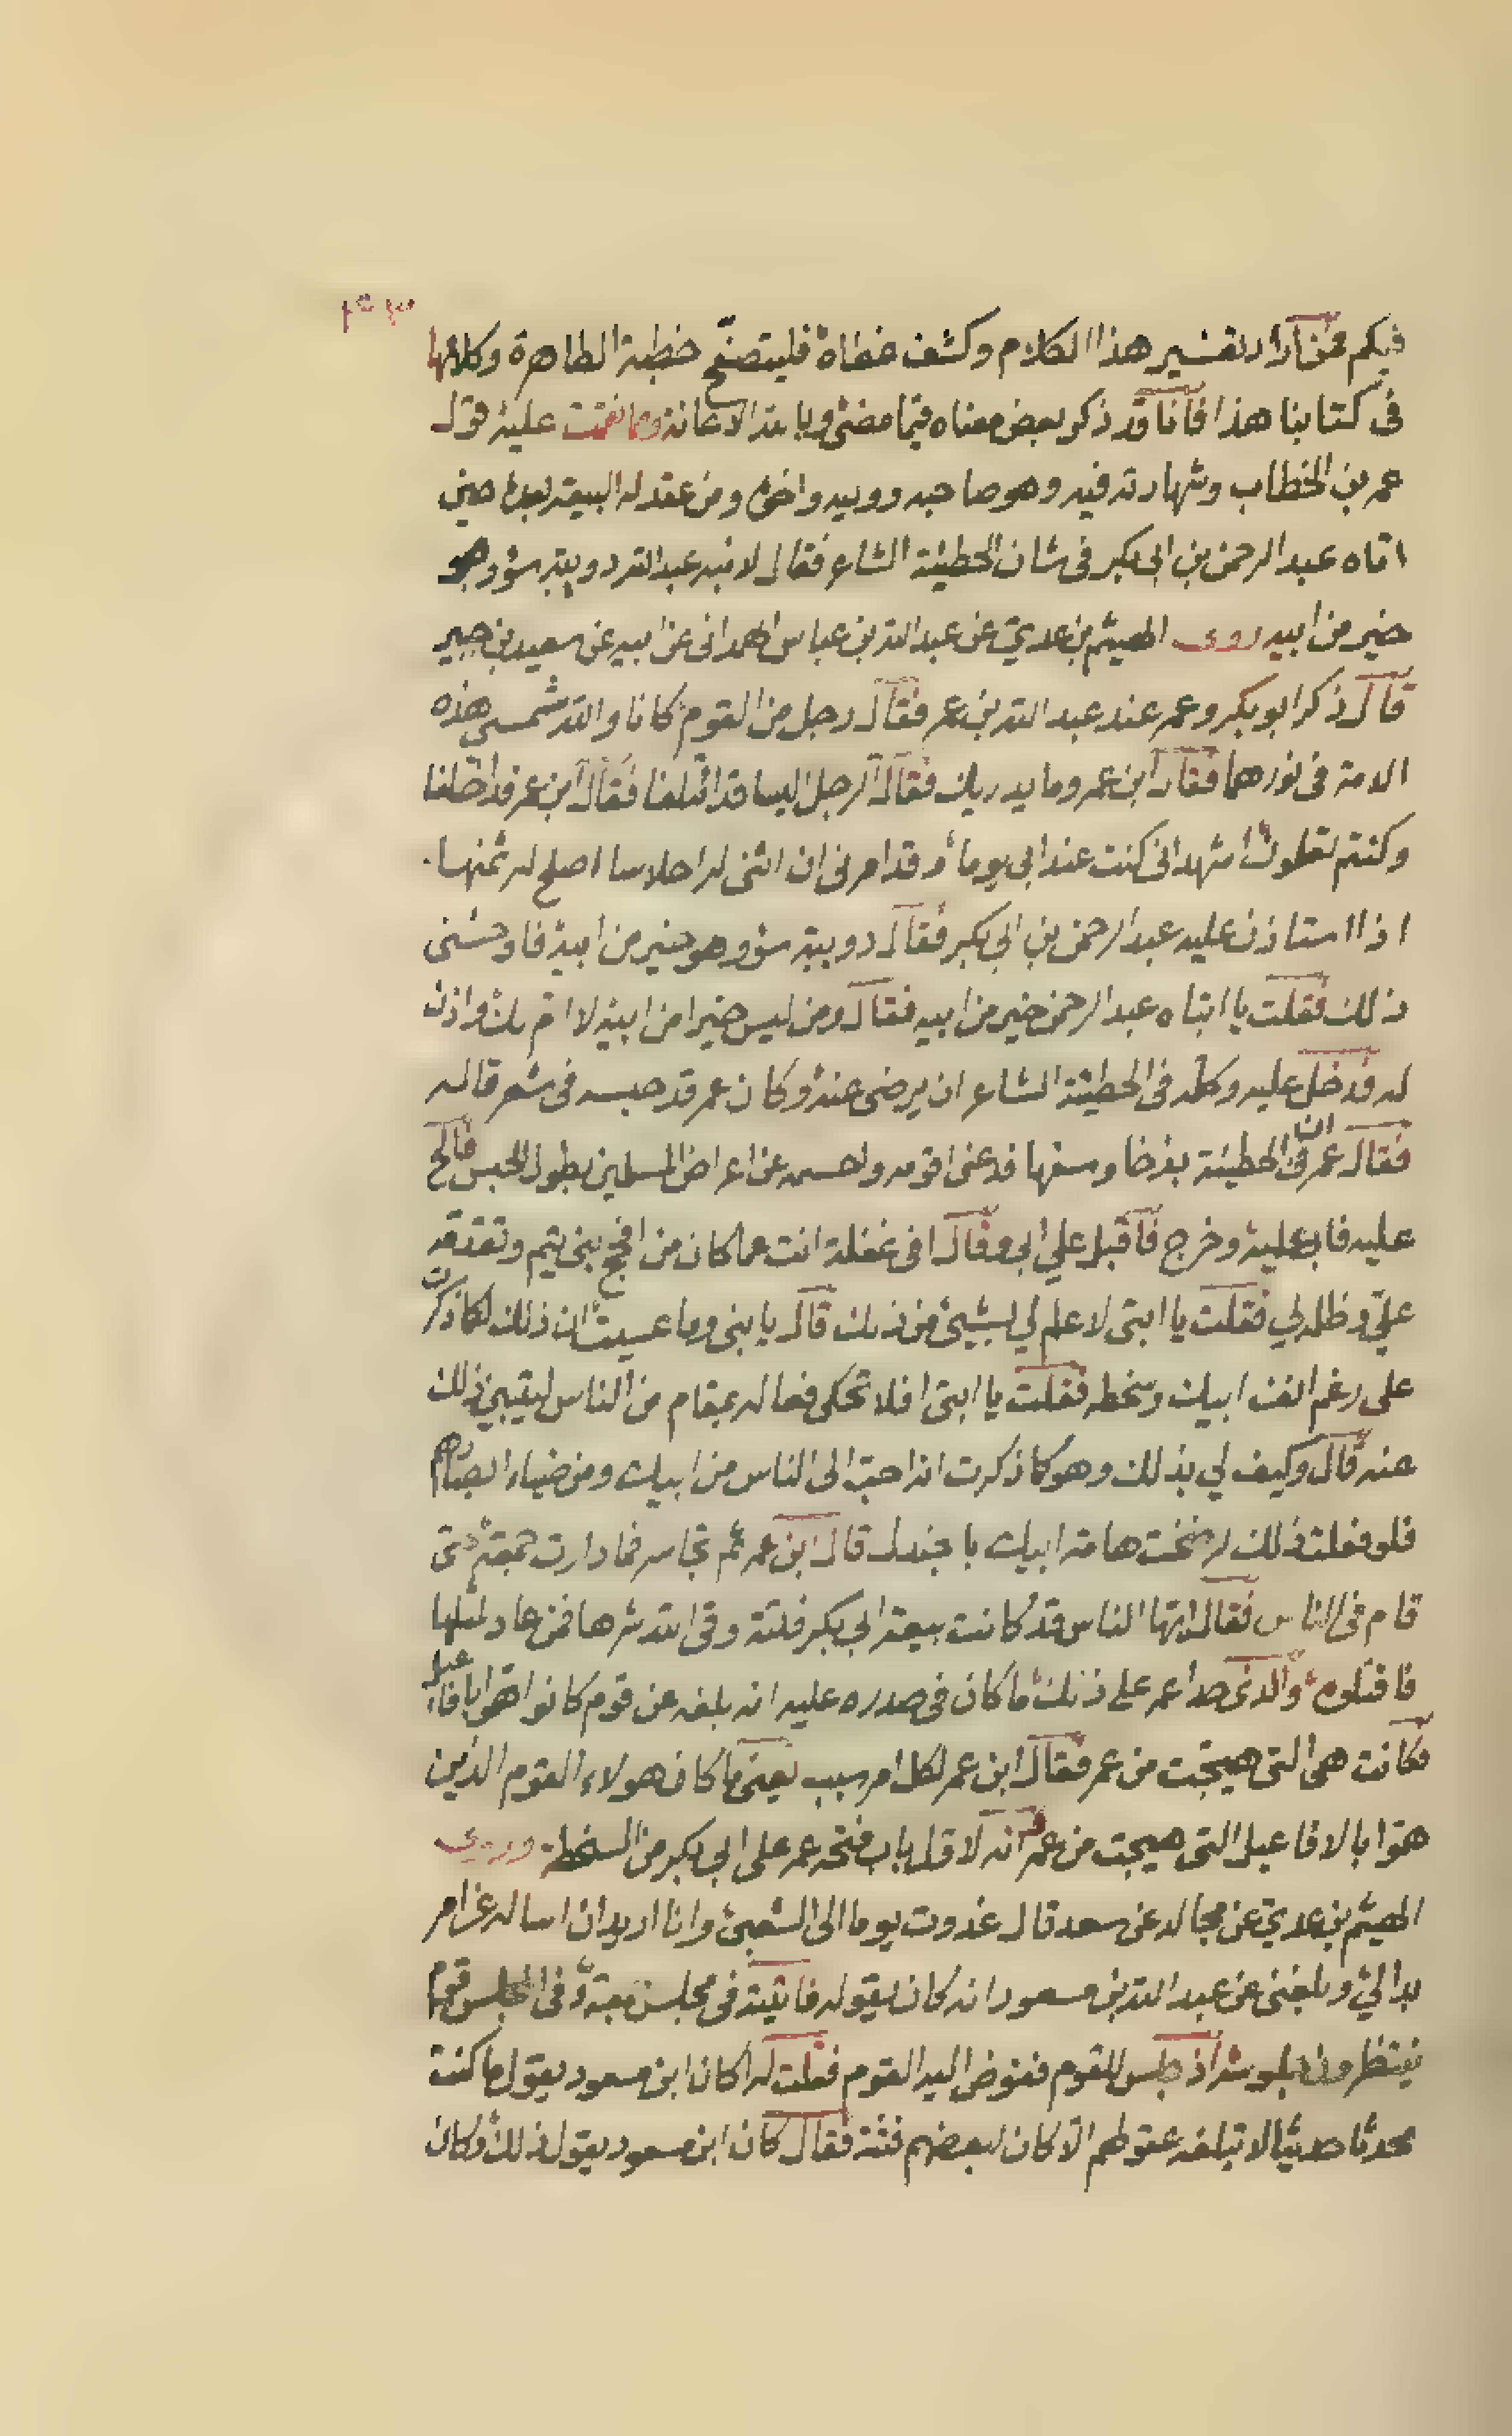 فيكم فمن اراد تفسير هذا الكلام وكشف غطاه فليتصفح خطبة الطاهرة وكلامها
فى كتابنا هذا فانا قد ذكر بعض معناه فيما مضى وبالله الاعانة ومما نقمت عليه قول
عمر بن الخطاب وشهادته فيه وهو صاحبه ووليه واخوه ومن عقد له البيعة بعده حين
اتاه عبد الرحمن بن ابى بكر فى شان الحطيئة الشاعر فقال لابنه عبد الله دويبة سوء وهو
خير من ابيه روى الهيثم بن عدي عن عبد الله بن عباس الهمدانى عن ابيه عن سعيد بن جبير
قال ذكر ابو بكر وعمر عند عبد الله بن عمر فقال رجل من القوم كانا والله شمسى هذه
الامة فى نورهما فقال ابن عمر وما يدريك فقال الرجل اليسا قد ائتلفا فقال ابن عمر قد اختلفا
وكنتم تعلون اشهد انى كنت عند ابى يوما وقد امرنى ان اثنى له احلاسا اصلح له ثمنها
اذا استاذن عليه عبد الرحمن بن ابى بكر فقال دويبة سوء وهو خير من ابيه فاوحشنى
ذلك فقلت يا ابتاه عبد الرحمن خير من ابيه فقال ومن ليس خيرا من ابيه لا ام لك واذن
له فدخل عليه وكلمه فى الحطيئة الشاعر ان يرضى عنه وكان عمر قد حبسه فى شعر قاله
فقال عمر ان فى الحطيئة بذخا وسفها فدعنى اقومه واحسمه عن اعراض المسلمين بطول الحبس فالح
عليه فابى عليه وخرج فاقبل علي ابى وقال افى غفلة انت عما كان من افجج بنى تيم وتقدمه
علي وظلمه لي فقلت يا ابتى لا علم لي بشيئ من ذلك قال يا بنى وما عسيت ان ذلك لكما ذكرت
على رغم انف ابيك وسخطه فقلت يا ابتى افلا تحكى فعاله بمقام من الناس ليتبين ذلك
عنه قال وكيف لي بذلك وهو كما ذكرت انه احب الى الناس من ابيك ومن ضياء ابصارهم
فلو فعلت ذلك لرضخت هامة ابيك باجندل قال ابن عمر ثم تجاسر فما دارت جمعة حتى
قام فى الناس فقال ايها الناس قد كانت بيعة ابى بكر فلتة وقى الله شرها فمن عاد لمثلها
فاقتلوه والذى حدا عمر على ذلك ما كان فى صدره عليه انه بلغه عن قوم كانوا هموا بافاعيل
فكانت هى التى هيجت من عمر فقال ابن عمر لكل امر سبب يعنى ما كان هولاء القوم الذين
هموا بالافاعيل التى هيجت من عمر انه لاول باب فتحه عمر على ابى بكر من السخطة وروى
الهيثم بن عدي عن مجالد عن سعد قال غدوت يوما الى الشعبى وانا اريد ان اساله عن امر
بدا لي وبلغنى عن عبد الله بن مسعود انه كان يقوله فاتيته فى مجلس وفى المجلس قوم
ينتظرون جلوسه اذ جلس للقوم فنهوض اليه القوم فقلت له اكان ابن مسعود يقول ما كنت
محدثا حديثا لا تبلغه عقولهم الا كان لبعضهم فتنة فقال كان ابن مسعود يقول ذلك وكان